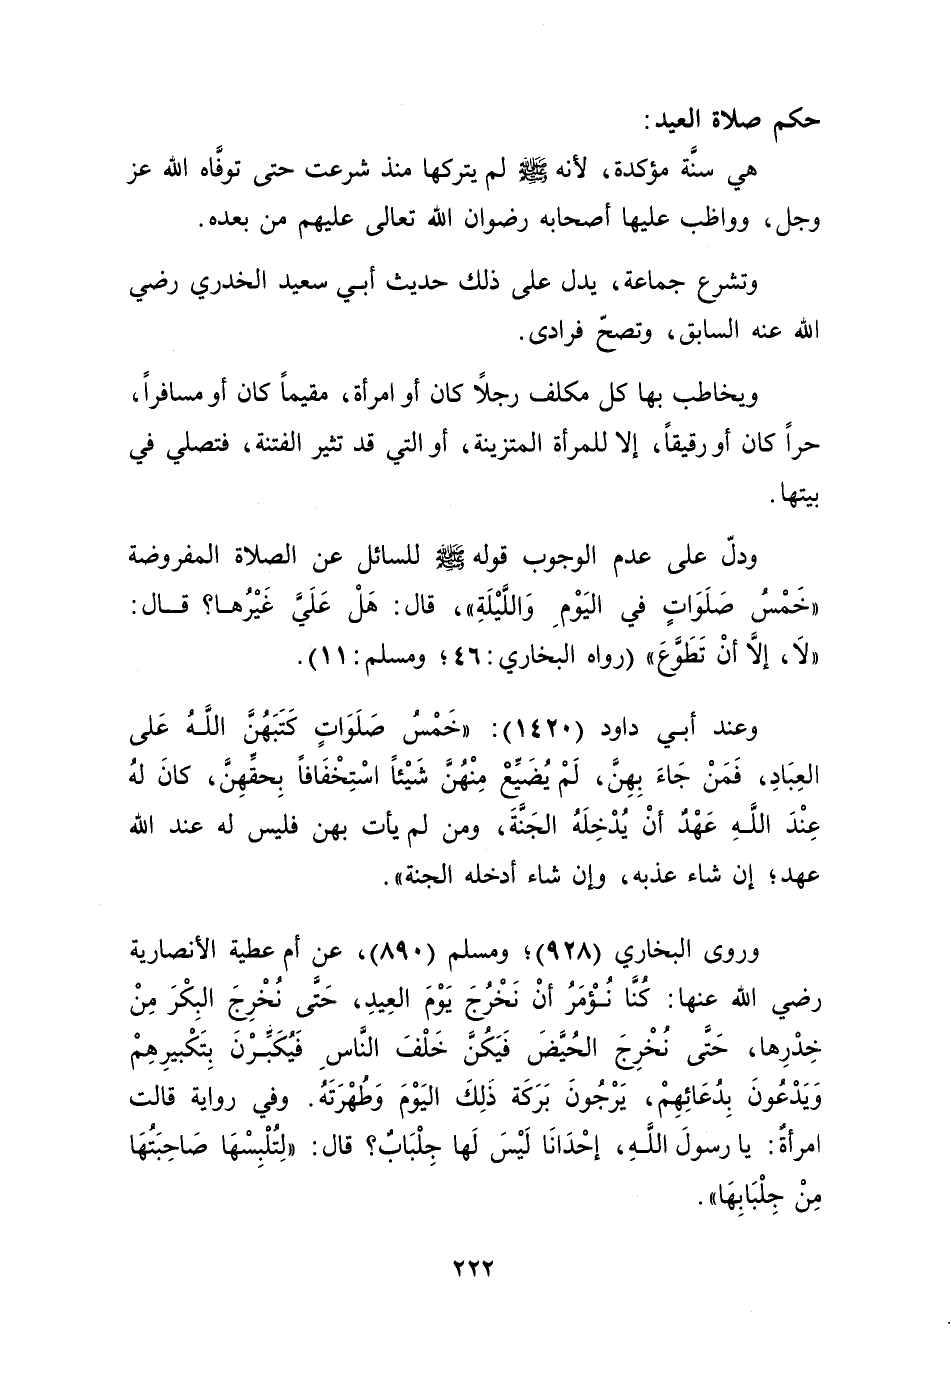 حكم صلاة العيد:
هي سنَّة مؤكدة، لأنه ﷺ لم يتركها منذ شرعت حتى توفَّاه الله عز
وجل، وواظب عليها أصحابه رضوان الله تعالى عليهم من بعده.
وتشرع جماعة، يدل على ذلك حديث أبي سعيد الخدري رضي
الله عنه السابق، وتصحّ فرادى.
ويخاطب بها كل مكلف رجلاً كان أو امرأة، مقيماً كان أو مسافراً،
حراً كان أو رقيقاً، إلا للمرأة المتزينة، أو التي قد تثير الفتنة، فتصلي في
بيتها.
ودلّ على عدم الوجوب قوله ﷺ للسائل عن الصلاة المفروضة
«خَمْسُ صَلَوَاتٍ في اليَوْمِ وَاللَّيْلَةِ»، قال: هَلْ عَلَيَّ غَيْرُها؟ قال:
«لَا، إلَّا أنْ تَطَوَّعَ» (رواه البخاري: ٤٦؛ ومسلم: ١١).
وعند أبي داود (١٤٢٠): «خَمْسُ صَلَوَاتٍ كَتَبَهُنَّ اللَّهُ عَلى
العِبَادِ، فَمَنْ جَاءَ بِهِنَّ، لَمْ يُضَيِّعْ مِنْهُنَّ شَيْئاً اسْتِخْفَافاً بِحقِّهِنَّ، كانَ لهُ
عِنْدَ اللَّهِ عَهْدٌ أنْ يُدْخِلَهُ الجَنَّةَ، ومن لم يأت بهن فليس له عند الله
عهد؛ إن شاء عذبه، وإن شاء أدخله الجنة».
وروى البخاري (٩٢٨)؛ ومسلم (٨٩٠)، عن أم عطية الأنصارية
رضي الله عنها: كُنَّا نُؤْمَرُ أنْ نَخْرُجَ يَوْمَ العِيدِ، حَتَّى نُخْرِجَ البِكْرَ مِنْ
خِدْرِها، حَتَّى نُخْرِجَ الحُيَّضَ فَيَكُنَّ خَلْفَ النَّاسِ فَيُكَبِّرْنَ بِتَكْبيرِهِمْ
وَيَدْعُونَ بِدُعَائِهِمْ، يَرْجُونَ بَرَكَة ذَلِكَ اليَوْمَ وَطُهْرَتَهُ. وفي رواية قالت
امرأةٌ: يا رسولَ اللَّهِ، إحْدَانَا لَيْسَ لَها جِلْبَابٌ؟ قال: «لِتُلْبِسْهَا صَاحِبَتُهَا
مِنْ جِلْبَابِهَا».
٢٢٢